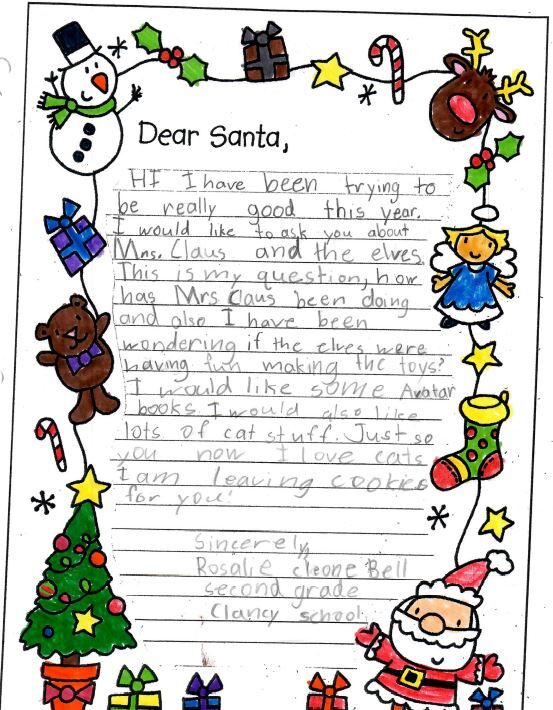 Dear Santa,
HI I have been trying to
be really good this year.
I would like to ask you about
Mrs. Claus and the elves.
This is my question, how
has Mrs Claus been doing
and also I have been
wondering if the elves were
having fun making the toys?
I would like some Avatar
books. I would also like
lots of cat stuff. Just so
you now I love cats
I am leaving cookies
for you!
Sincerely,
Rosalie cleone Bell
second grade
Clancy school